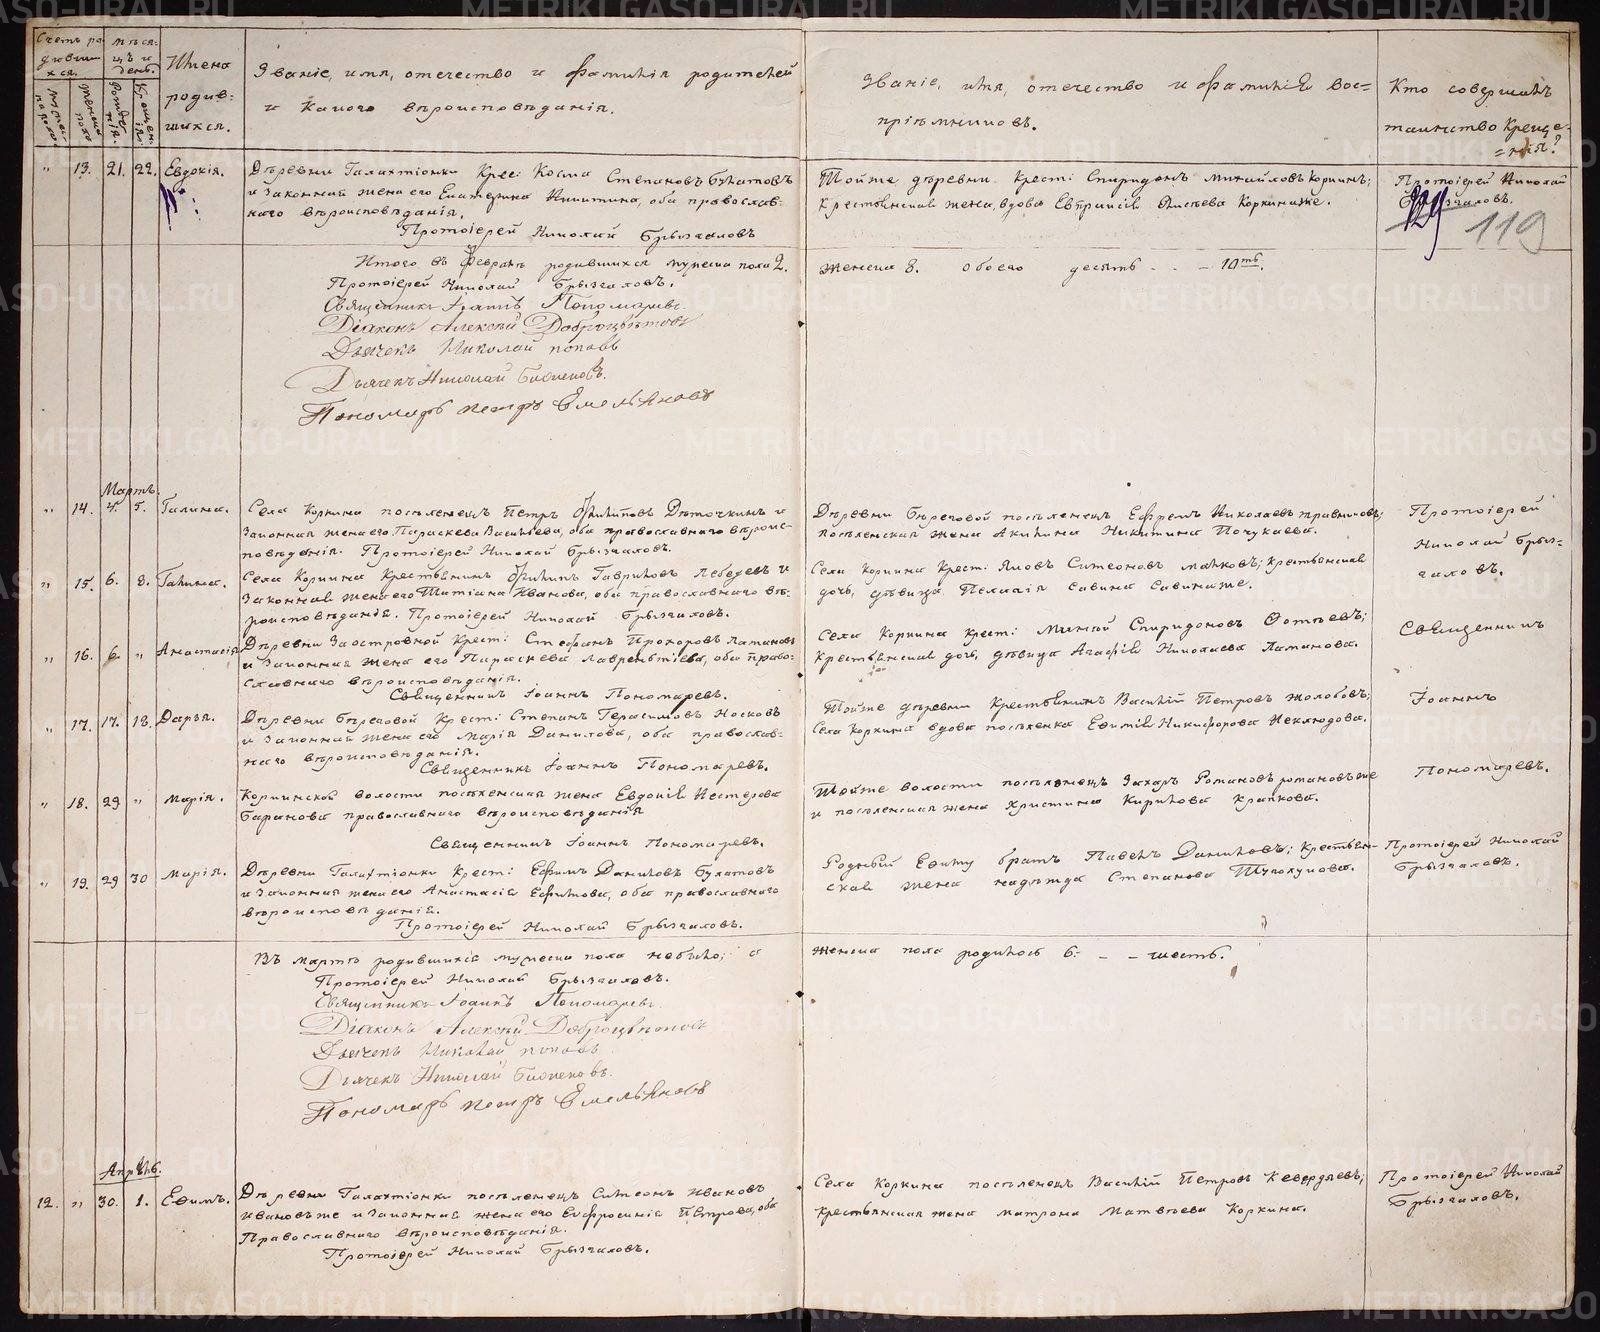 Счетъ ро-
дивши
хся.
мѣся-
цъ и
день.
Имена
родив-
шихся.
Званіе, имя, отечество и фамилія родителей
и какого вѣроисповѣданія.
Званіе, имя, отечество и фамиліѣ вос=
пріѣмниковъ.
Кто совершалъ
таинство Креще-
=нія?
" 13. 21. 22. Евдокія.
Дѣревни Галактіонки Крес: Косма Степановъ Булатовъ
и Законная жена его Екатерина Никитина, оба православ-
наго вѣроисповѣданія.
Протоіерей Николай Брызгаловъ
Тойже дѣревни Крест: Спиридонъ Михайловъ Коркинъ;
Крестьянская жена, вдова Евпраксія Коркиныже.
Протоіерей Николай
Брызгаловъ.
119
Итого въ Февралѣ родившихся мужска пола 2.
женска 8. обоего десять - - - 10ть.
Протоіерей Николай Брызгаловъ.
Священникъ Іоаннъ Пономаревъ
Діаконъ Алексѣй Доброцвѣтовъ
Дьячекъ Николай Поповъ
Дьячекъ Николай
Пономарь Петръ Емельяновъ
Мартъ.
" 14. 4. 5. Галина.
Села Коркина поселенецъ Петръ Филиповъ Дѣточкинъ и
Законная жена его Параскева Васильева, оба православнаго вѣроис-
повѣданія. Протоіерей Николай Брызгаловъ.
Дѣревни Береговой поселенецъ Ефремъ Николаевъ Травниковъ;
поселенская жена Акилина Никитина Почукаева.
Протоіерей
Николай Брыз=
галовъ.
" 15. 6. 8. Галина.
Села Коркина Крестьянинъ Филипъ Гавриловъ Лебедевъ и
Законная жена его Татіана Иванова, оба православнаго вѣ-
роисповѣданія. Протоіерей Николай Брызгаловъ.
Села Коркина Крест: Яковъ Симеоновъ Малковъ; крестьянская
дочь, дѣвица Пелагія Савина Савинаже.
" 16. 6. " Анастасія
Дѣревни Заостровной Крест: Стефанъ Прохоровъ Ламановъ
и Законная жена его Параскева Лаврентіева, оба право-
славнаго вѣроисповѣданія.
Священникъ Іоаннъ Пономаревъ.
Села Коркина крест: Спиридоновъ Фотѣевъ;
крестьянская дочь, дѣвица Агафія Николаева Ламанова.
Священникъ
" 17. 17. 18. Дарья.
Дѣревни Береговой Крест: Степанъ Герасимовъ Носковъ
и Законная жена его Марія Данилова, оба православ-
наго вѣроисповѣданія.
Священникъ Іоаннъ Пономаревъ.
Тойже дѣревни Крестьянинъ Василій Петровъ Жолобовъ;
Села Коркина вдова поселенка Евфимія Никифорова Неклюдова.
Іоаннъ
" 18. 29. " Марія.
Коркинской волости поселенская жена Евдокія Нестерова
Баранова православнаго вѣроисповѣданія
Священникъ Іоаннъ Пономаревъ.
Тойже волости поселенецъ Захаръ Романовъ Романовъже
и поселенская жена Христина Кирилова Крапкова.
Пономаревъ.
" 19. 29 30 Марія.
Дѣревни Галактіонки Крест: Ефимъ Даниловъ Булатовъ
и Законная жена его Анастасія Ефимова, оба православнаго
вѣроисповѣданія.
Протоіерей Николай Брызгаловъ.
Родный Ефиму братъ Павелъ Даниловъ; крестьян-
ская жена надежда Степанова Тюголукова.
Протоіерей Николай
Брызгаловъ.
Въ мартѣ родившихся мужеска пола небыло; а
женска пола родилось 6. - - шесть.
Протоіерей Николай Брызгаловъ.
Священникъ Іоаннъ Пономаревъ.
Діаконъ Алексѣй Доброцвѣтовъ
Дьячекъ Николай Поповъ
Дьячекъ Николай
Пономарь Петръ Емельяновъ
Апрѣль.
12. " 30. 1. Ефимъ.
Дѣревни Галактіонки поселенецъ Симеонъ Ивановъ
Ивановъже и Законная жена его Евфросинія Петрова, оба
Православнаго вѣроисповѣданія.
Протоіерей Николай Брызгаловъ.
Села Коркина поселенецъ Василій Петровъ;
крестьянская жена матрона Матвѣева Коркина.
Протоіерей Николай
Брызгаловъ.
METRIKI.GASO-URAL.RU